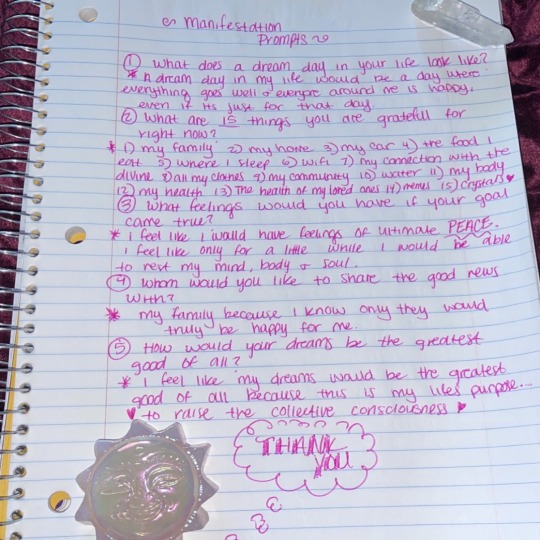 Manifestation
Prompts
① What does a dream day in your life look like?
* A dream day in my life would be a day where
everything goes well & everyone around me is happy,
even if its just for that day.
② What are 15 things you are grateful for
right now?
* 1) my family 2) my home 3) my car 4) the food I
eat 5) where I sleep 6) wifi 7) my connection with the
divine 8) all my clothes 9) my community 10) water 11) my body
12) my health 13) The health of my loved ones 14) memes 15) crystals ♥
③ What feelings would you have if your goal
came true?
* I feel like I would have feelings of ultimate PEACE.
I feel like only for a little while I would be able
to rest my mind, body & soul.
④ Whom would you like to share the good news
with?
* my family because I know only they would
truly be happy for me.
⑤ How would your dreams be the greatest
good of all?
* I feel like my dreams would be the greatest
good of all because this is my lifes purpose...
♥ to raise the collective consciousness ♥
THANK
YOU